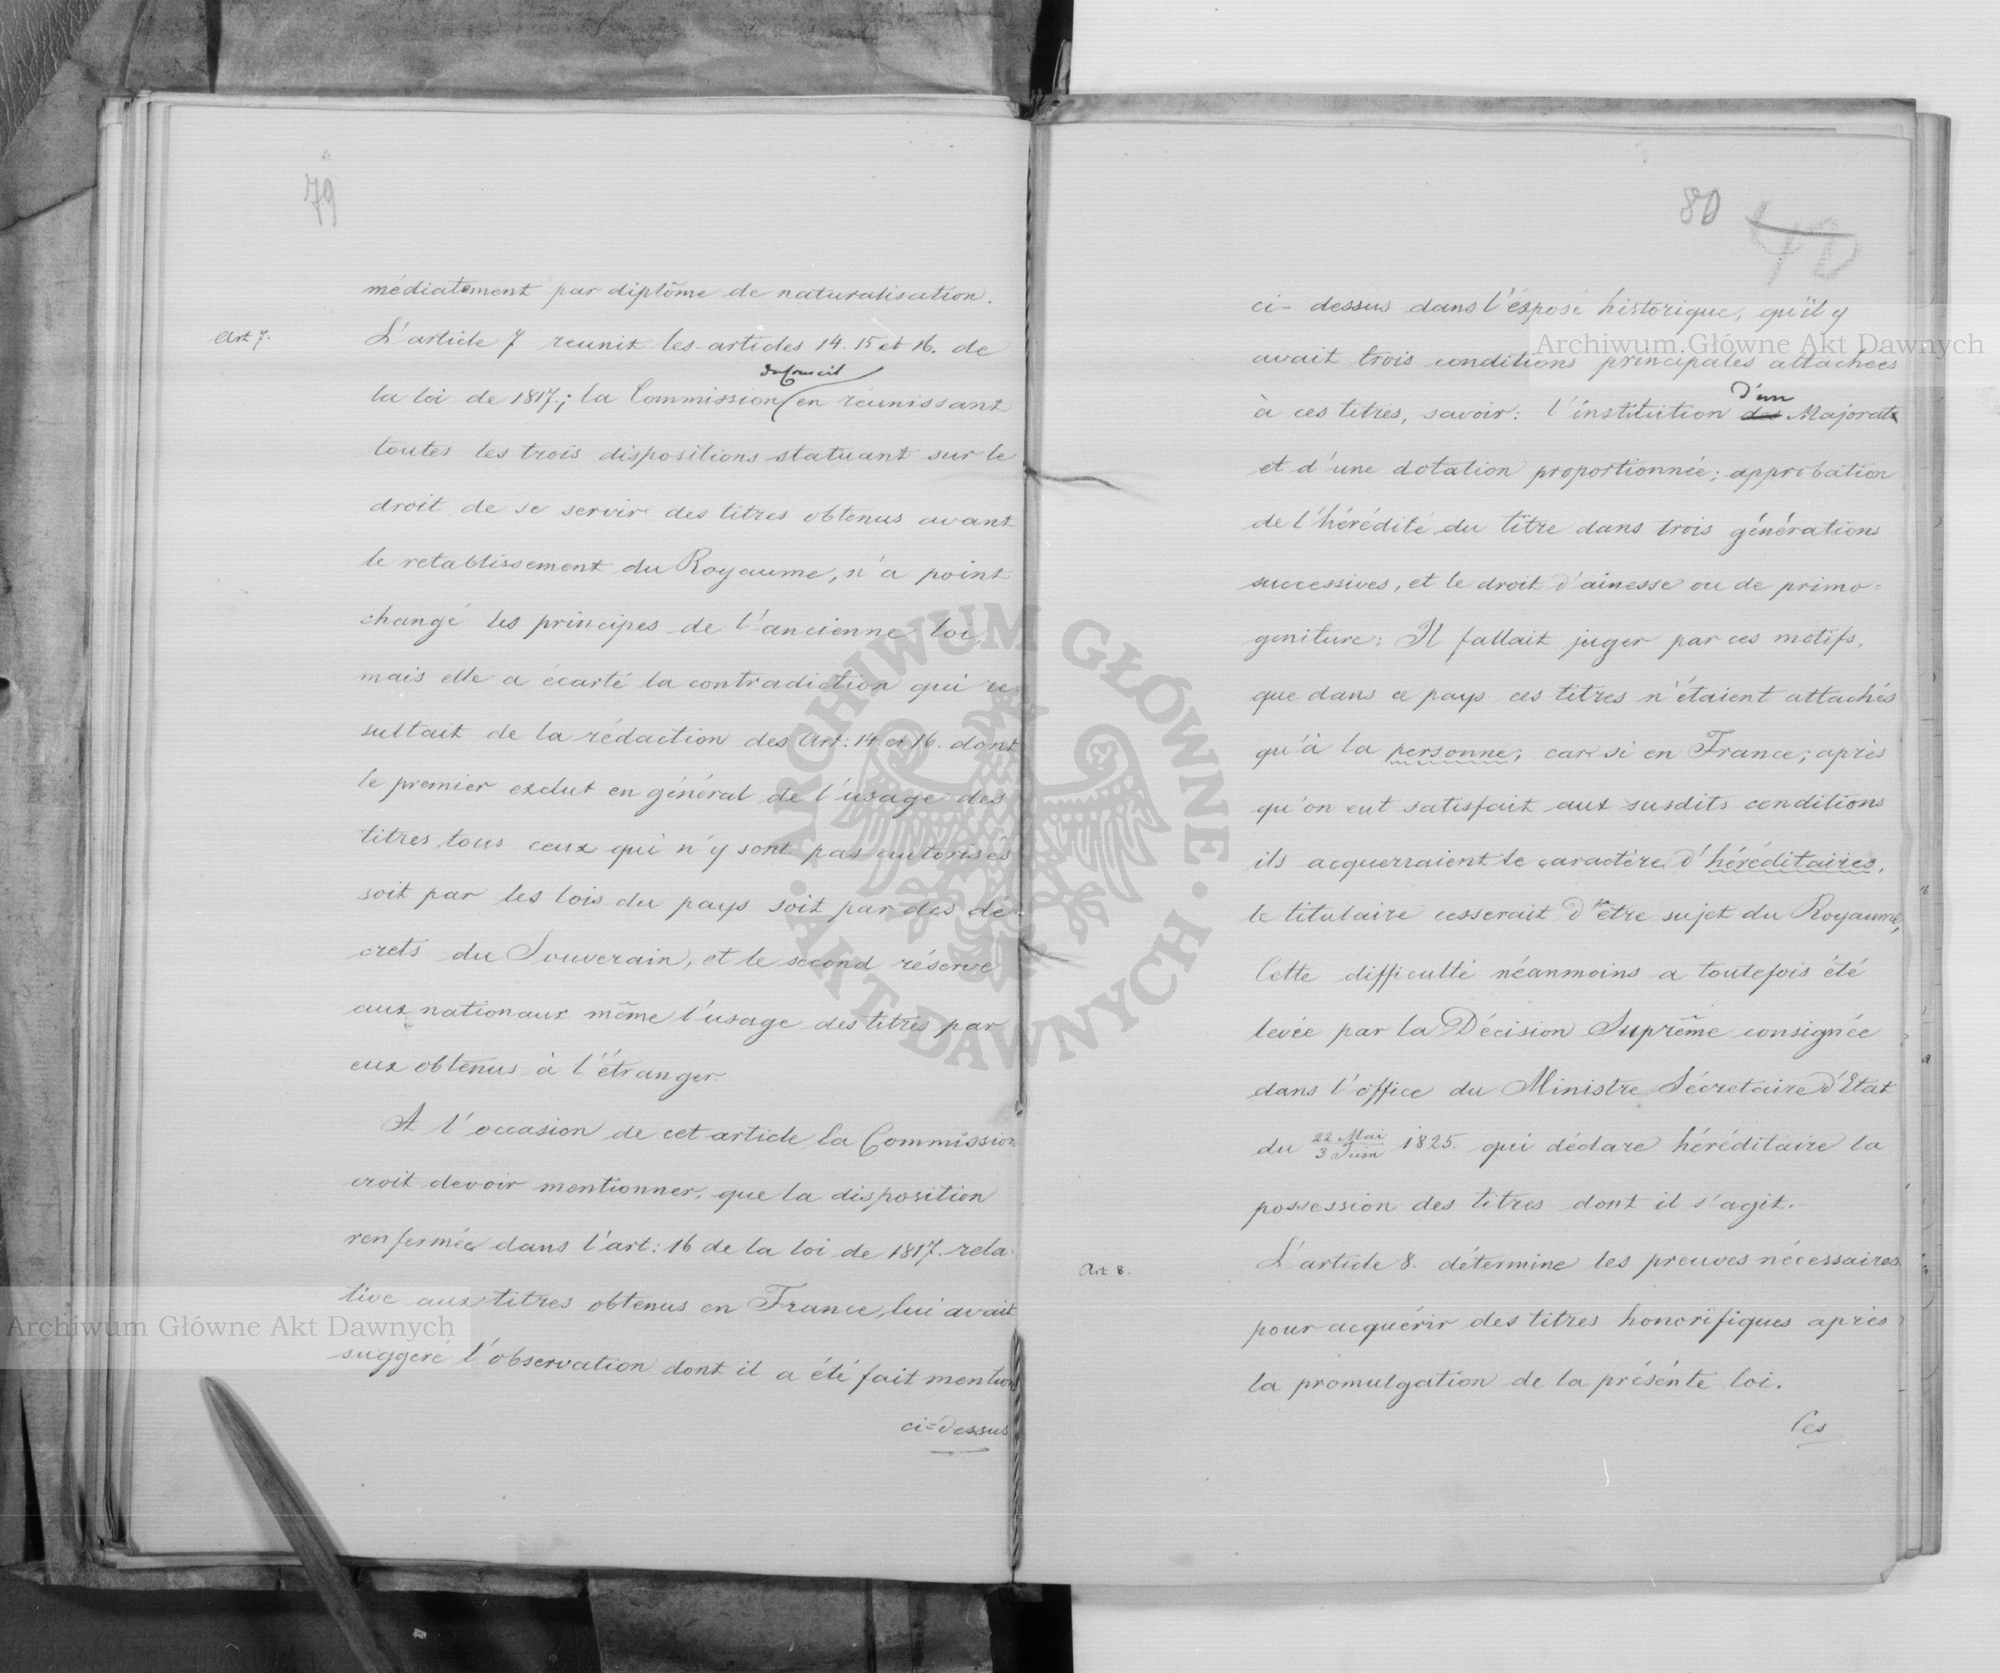 79
médiatement par diplôme de naturalisation.
Art 7.
L'article 7 reunit les articles 14. 15 et 16. de
du Conseil
la loi de 1817.; la Commission en réunissant
toutes les trois dispositions statuant sur le
droit de se servir des titres obtenus avant
le retablissement du Royaume, n'a point
changé les principes de l'ancienne loi,
mais elle a écarté la contradiction qui re-
sultait de la rédaction des Art: 14 et 16. dont
le premier exclut en général de l'usage des
titres tous ceux qui n'y sont pas autorisés
soit par les lois du pays soit par des dé-
crets du Souverain, et le second réserve
aux nationaux même l'usage des titres par
eux obtenus à l'étranger.
A l'occasion de cet article la Commission
croit devoir mentionner, que la disposition
renfermée dans l'art: 16 de la loi de 1817. rela-
tive aux titres obtenus en France, lui avait
suggéré l'observation dont il a été fait mention
ci=dessus
80
40
ci-dessus dans l'éxposé historique, qu'il y
avait trois conditions principales attachées
d'un
à ces titres, savoir: l'institution des Majorats
et d'une dotation proportionnée; approbation
de l'hérédité du titre dans trois générations
successives, et le droit d'ainesse ou de primo=
geniture: Il fallait juger par ces motifs,
que dans ce pays ces titres n'étaient attachés
qu'à la personne; car si en France, après
qu'on eut satisfait aux susdits conditions
ils acquerraient le caractère d'héréditaires,
le titulaire cesserait d'être sujet du Royaume,
Cette difficulté néanmoins a toutefois été
levée par la Décision Suprême consignée
dans l'office du Ministre Sécretaire d'Etat
du 22 Mai / 3 Juin 1825. qui déclare héréditaire la
possession des titres dont il s'agit.
Art 8.
L'article 8. détermine les preuves nécessaires
pour acquérir des titres honorifiques après
la promulgation de la présénte loi.
Ces
Archiwum Główne Akt Dawnych
Archiwum Główne Akt Dawnych
ARCHIWUM GŁÓWNE · AKT DAWNYCH ·